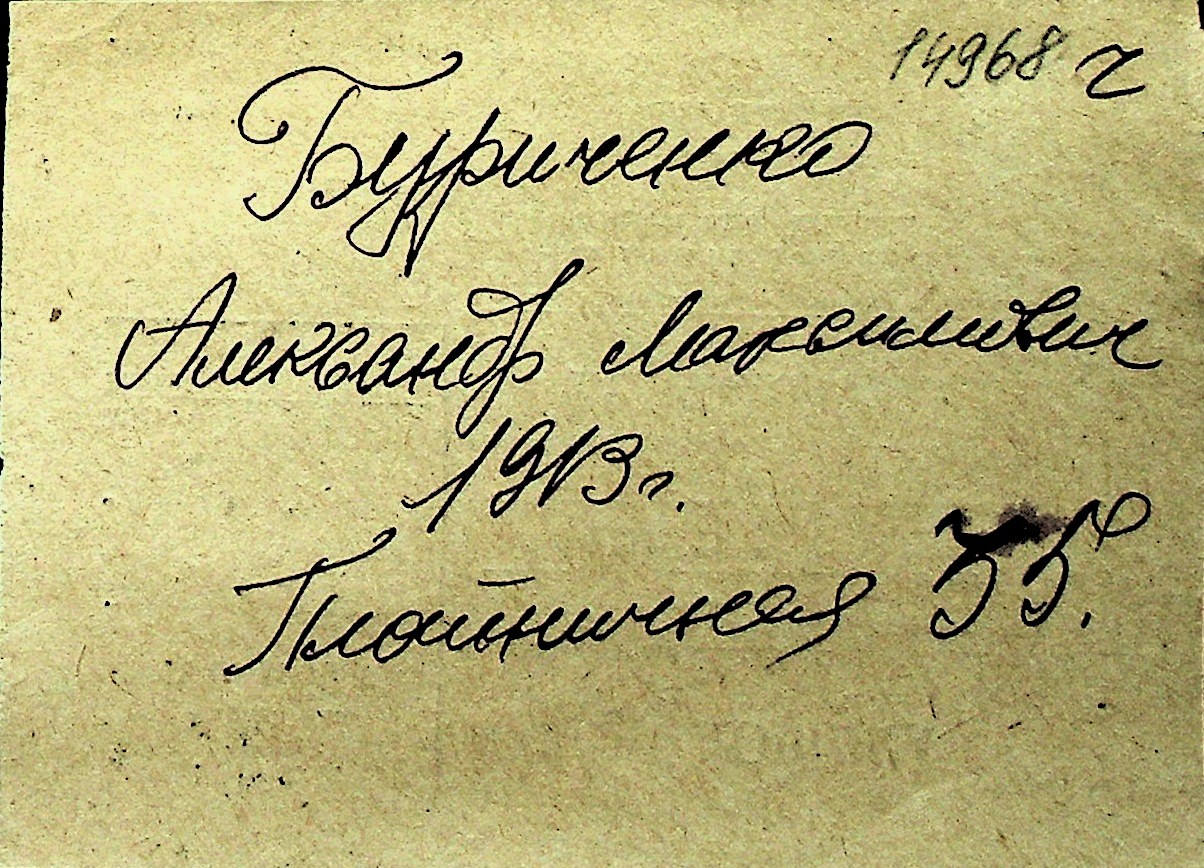 14968 г
Буриченко
Александр Максимович
1913 г.
Плотничная 35.